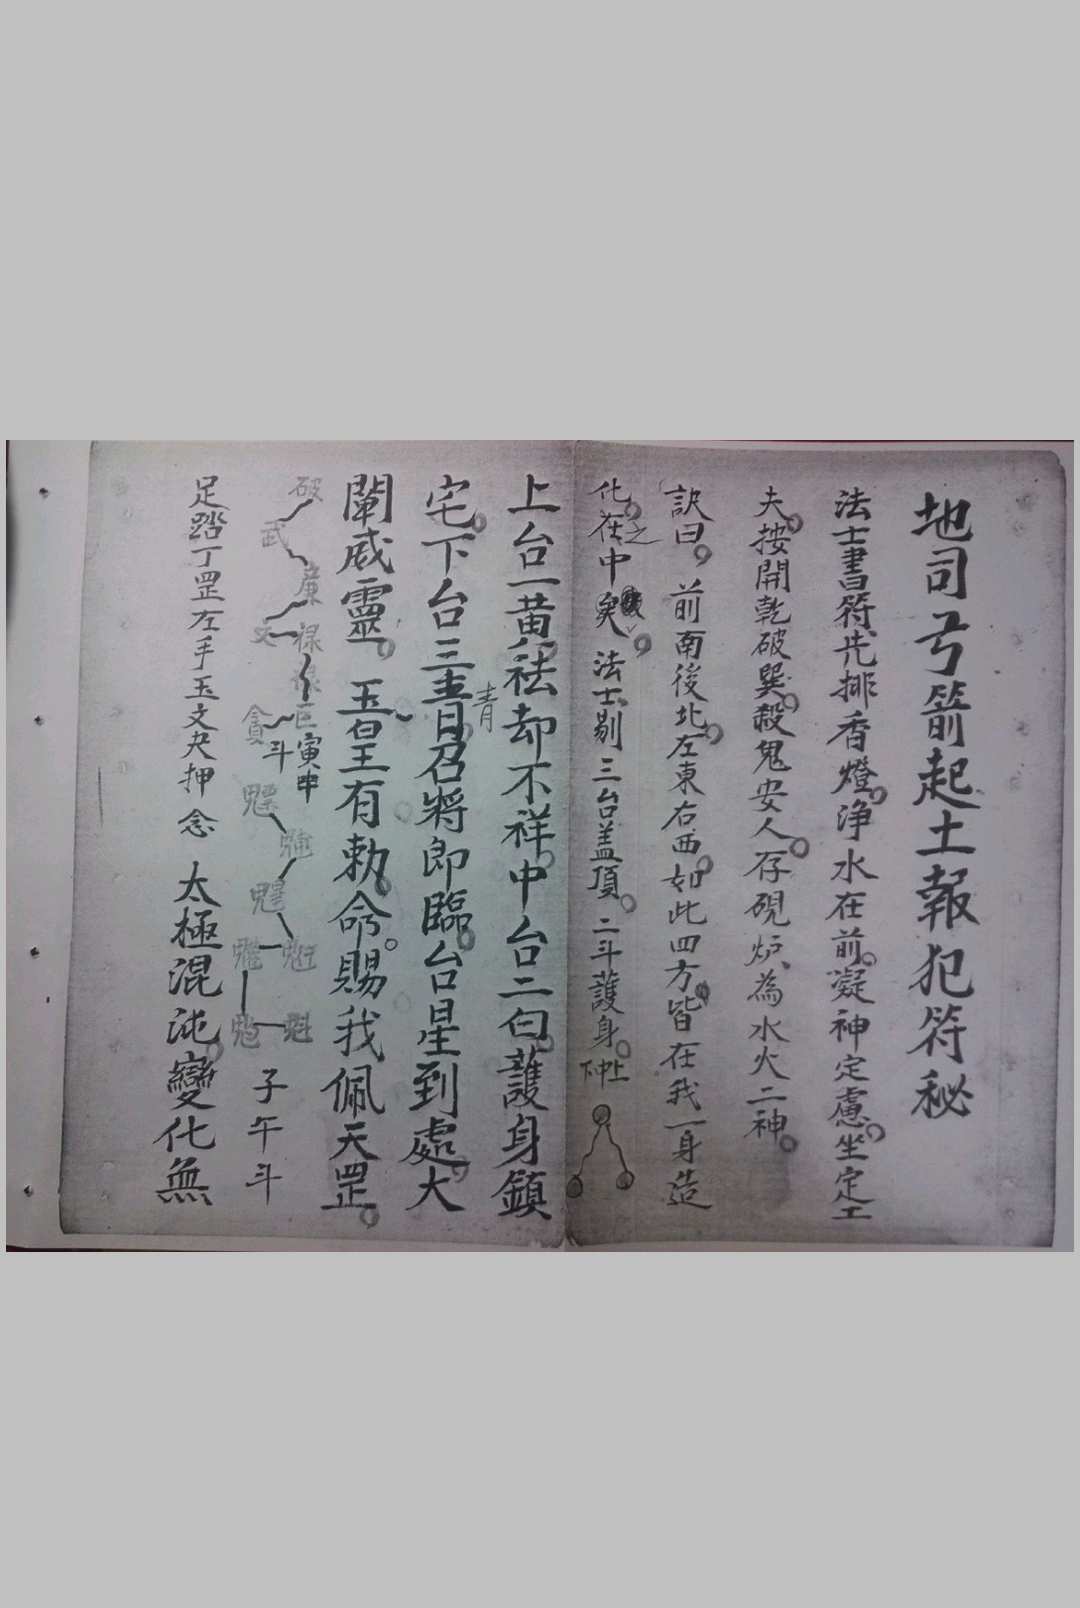 地司弓箭起土報犯符秘
法士書符先排香燈浄水在前凝神定慮坐定土
夫按開乾破巽殺鬼安人存硯炉為水火二神
訣曰前南後北左東右西如此四方皆在我一身造
化在之中矣法士剔三台盖頂二斗護身上中下
上台一黄祛却不祥中台二白護身鎮
宅下台三青日召將即臨台星到處大
青
闡威靈玉皇王有勅命賜我佩天罡
破武廉文禄巨貪斗寅申
魁
子午斗
足踏丁罡左手玉文夬押念太極混沌變化無